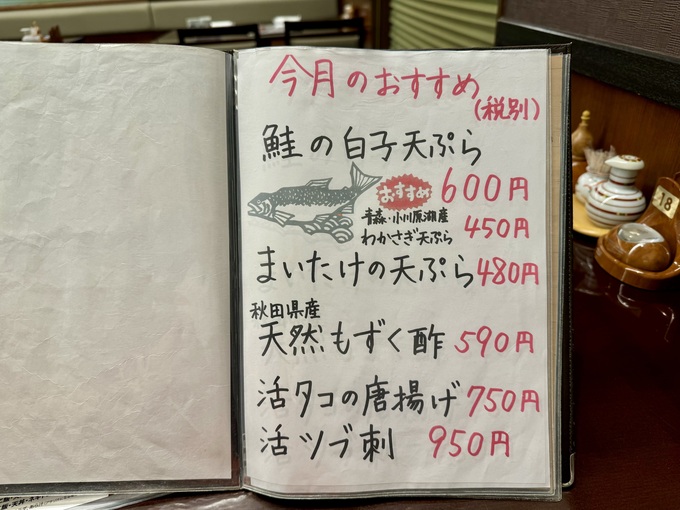 今月のおすすめ
(税別)
鮭の白子天ぷら
おすすめ
600円
青森・小川原湖産
わかさぎ天ぷら 450円
まいたけの天ぷら 480円
秋田県産
天然もずく酢 590円
活タコの唐揚げ 750円
活ツブ刺 950円
18